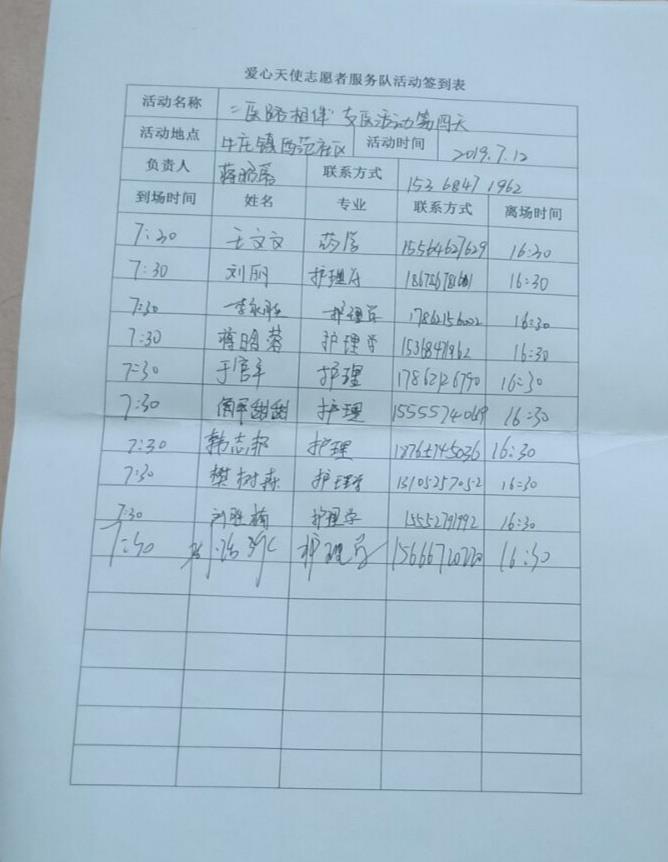 爱心天使志愿者服务队活动签到表
活动名称 "医路相伴"支医活动第四天
活动地点 牛庄镇西范社区 活动时间 2019.7.12
负责人 联系方式 153 6847 1962
到场时间 姓名 专业 联系方式 离场时间
7:30 王文文 药学 15564627629 16:30
7:30 刘丽 护理学 16:30
7:30 李永胜 护理学 17862156002 16:30
7:30 护理学 15368471962 16:30
7:30 于官军 护理 17862126790 16:30
7:30 甜甜 护理 15555774069 16:30
7:30 韩志超 护理 18765745036 16:30
7:30 樊树森 护理学 13105257052 16:30
7:30 刘胜楠 护理学 15552791992 16:30
7:30 护理学 16:30